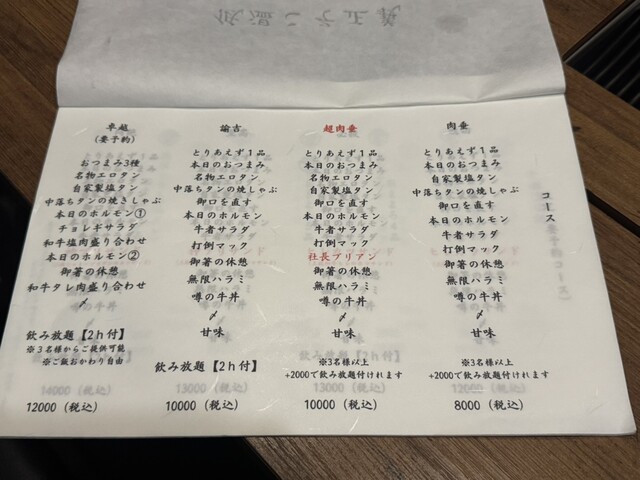 コース
肉壺
とりあえず1品
本日のおつまみ
名物エロタン
自家製塩タン
中落ちタンの焼しゃぶ
御口を直す
本日のホルモン
牛者サラダ
打倒マック
御箸の休憩
無限ハラミ
噂の牛丼
〆
甘味
※3名様以上
+2000で飲み放題付けれます
8000(税込)
超肉壺
とりあえず1品
本日のおつまみ
名物エロタン
自家製塩タン
中落ちタンの焼しゃぶ
御口を直す
本日のホルモン
牛者サラダ
打倒マック
社長ブリアン
御箸の休憩
無限ハラミ
噂の牛丼
〆
甘味
※3名様以上
+2000で飲み放題付けれます
10000(税込)
諭吉
とりあえず1品
本日のおつまみ
名物エロタン
自家製塩タン
中落ちタンの焼しゃぶ
御口を直す
本日のホルモン
牛者サラダ
打倒マック
御箸の休憩
無限ハラミ
噂の牛丼
〆
甘味
飲み放題【2h付】
10000(税込)
卓越
(要予約)
おつまみ3種
名物エロタン
自家製塩タン
中落ちタンの焼きしゃぶ
本日のホルモン①
チョレギサラダ
和牛塩肉盛り合わせ
本日のホルモン②
御箸の休憩
和牛タレ肉盛り合わせ
〆
飲み放題【2h付】
※3名様からご提供可能
※ご飯おかわり自由
12000(税込)